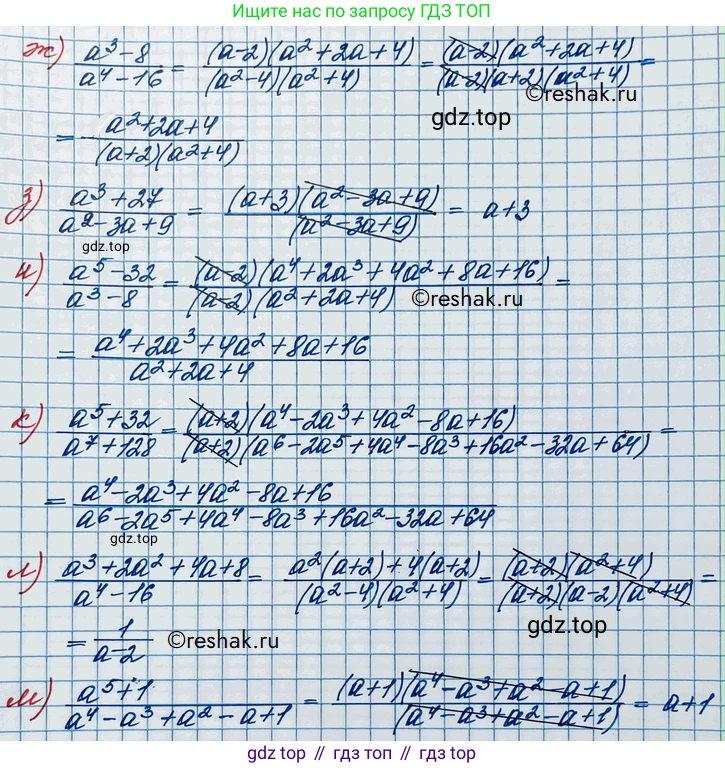 Ищите нас по запросу ГДЗ ТОП
ж) (a³ − 8)/(a⁴ − 16) = ((a−2)(a² + 2a + 4))/((a² − 4)(a² + 4)) = ((a−2)(a² + 2a + 4))/((a−2)(a+2)(a² + 4)) =
©reshak.ru
gdz.top
= (a² + 2a + 4)/((a+2)(a² + 4))
з) (a³ + 27)/(a² − 3a + 9) = ((a+3)(a² − 3a + 9))/((a² − 3a + 9)) = a + 3
gdz.top
и) (a⁵ − 32)/(a³ − 8) = ((a−2)(a⁴ + 2a³ + 4a² + 8a + 16))/((a−2)(a² + 2a + 4)) =
©reshak.ru
= (a⁴ + 2a³ + 4a² + 8a + 16)/(a² + 2a + 4)
к) (a⁵ + 32)/(a⁷ + 128) = ((a+2)(a⁴ − 2a³ + 4a² − 8a + 16))/((a+2)(a⁶ − 2a⁵ + 4a⁴ − 8a³ + 16a² − 32a + 64)) =
= (a⁴ − 2a³ + 4a² − 8a + 16)/(a⁶ − 2a⁵ + 4a⁴ − 8a³ + 16a² − 32a + 64)
gdz.top
л) (a³ + 2a² + 4a + 8)/(a⁴ − 16) = (a²(a+2) + 4(a+2))/((a² − 4)(a² + 4)) = ((a+2)(a² + 4))/((a+2)(a−2)(a² + 4)) =
gdz.top
= 1/(a−2)
©reshak.ru
м) (a⁵ + 1)/(a⁴ − a³ + a² − a + 1) = ((a+1)(a⁴ − a³ + a² − a + 1))/((a⁴ − a³ + a² − a + 1)) = a + 1
gdz.top // гдз топ // гдз.топ // gdz top